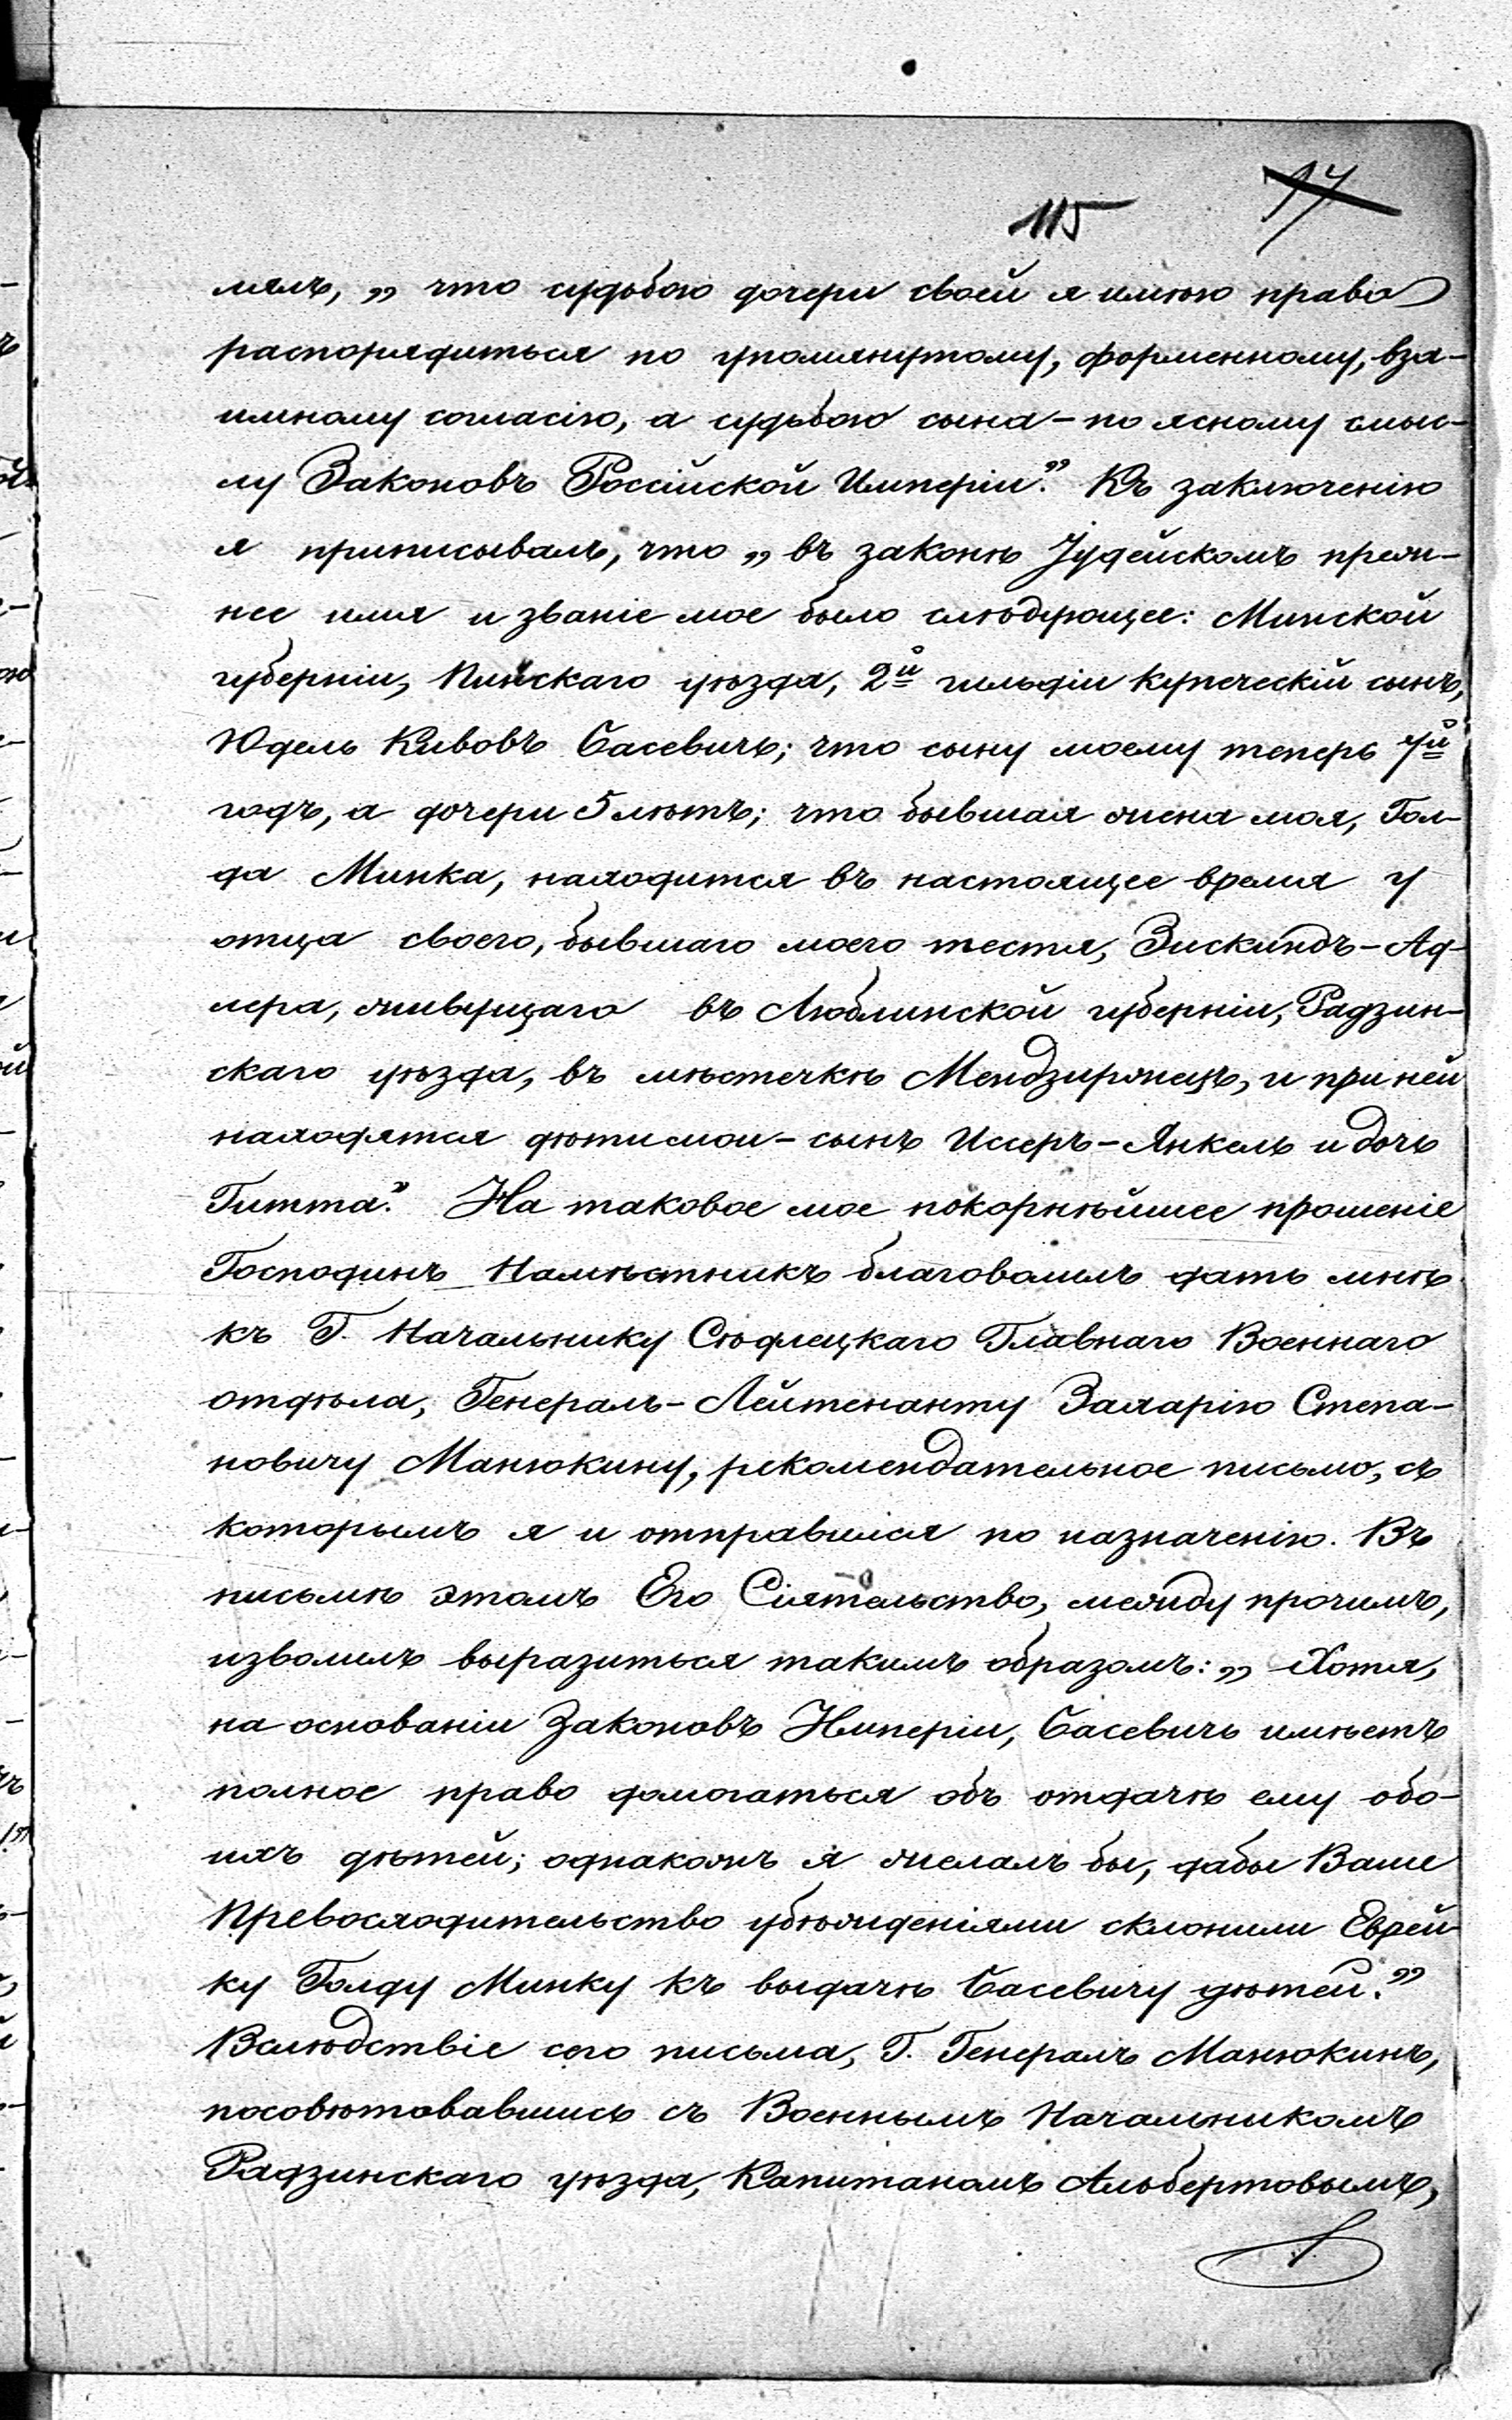 17
115
лялъ, „ что судьбою дочери своей я имѣю право
распорядиться по упомянутому, форменному, вза-
имному согласію, а судьбою сына – по ясному смыс-
лу Законовъ Россійской Имперіи.” Къ заключенію
я приписывалъ, что „ въ законѣ Іудейскомъ преж-
нее имя и званіе мое было слѣдующее: Минской
губерніи, Пинскаго уѣзда, 2й гильдіи купеческій сынъ,
Юдель Кивовъ Басевичъ; что сыну моему теперь 7й
годъ, а дочери 5 лѣтъ; что бывшая жена моя, Гол-
да Минка, находится въ настоящее время у
отца своего, бывшаго моего тестя, Зискиндъ-Ад-
лера, живущаго въ Люблинской губерніи, Радзин-
скаго уѣзда, въ мѣстечкѣ Мендзиржецъ, и при ней
находятся дѣти мои – сынъ Иссеръ-Янкель и дочь
Гитта.” На таковое мое покорнѣйшее прошеніе
Господинъ Намѣстникъ благоволилъ дать мнѣ
къ Г. Начальнику Сѣдлецкаго Главнаго Военнаго
отдѣла, Генералъ-Лейтенанту Захарію Степа-
новичу Манюкину, рекомендательное письмо, съ
которымъ я и отправился по назначенію. Въ
письмѣ этомъ Его Сіятельство, между прочимъ,
изволилъ выразиться такимъ образомъ: „ Хотя,
на основаніи Законовъ Имперіи, Басевичъ имѣетъ
полное право домогаться объ отдачѣ ему обо-
ихъ дѣтей; однакожъ я желалъ бы, дабы Ваше
Превосходительство убѣжденіями склонили Еврей-
ку Голду Минку къ выдачѣ Басевичу дѣтей.”
Вслѣдствіе сего письма, Г. Генералъ Манюкинъ,
посовѣтовавшись съ Военнымъ Начальникомъ
Радзинскаго уѣзда, Капитаномъ Альбертовымъ,